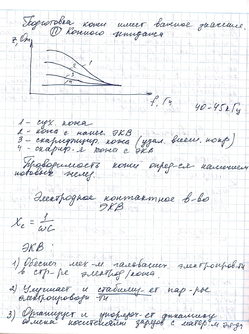 Подготовка кожи имеет важное значение.
① Кожного импеданса
z, Ом
1
2
3
4
f, Гц
40-45 кГц
1 - сух кожа
2 - кожа с нанес. ЭКВ
3 - скарифицир кожа (удал. внешн. покр)
4 - скариф-я кожа с ЭКВ
Проводимость кожи опред-ся наличием
потовых желез.
Электродное контактное в-во
ЭКВ
Xc = 1/ωC
ЭКВ:
1) Обеспеч
в стр-ре электрод/кожа
2) Улучшает и стабилиз-ет пар-ры
электропроводн-ти
3) Организует и упорядоч-ет динамику
обмена носителями заряда с матер-м